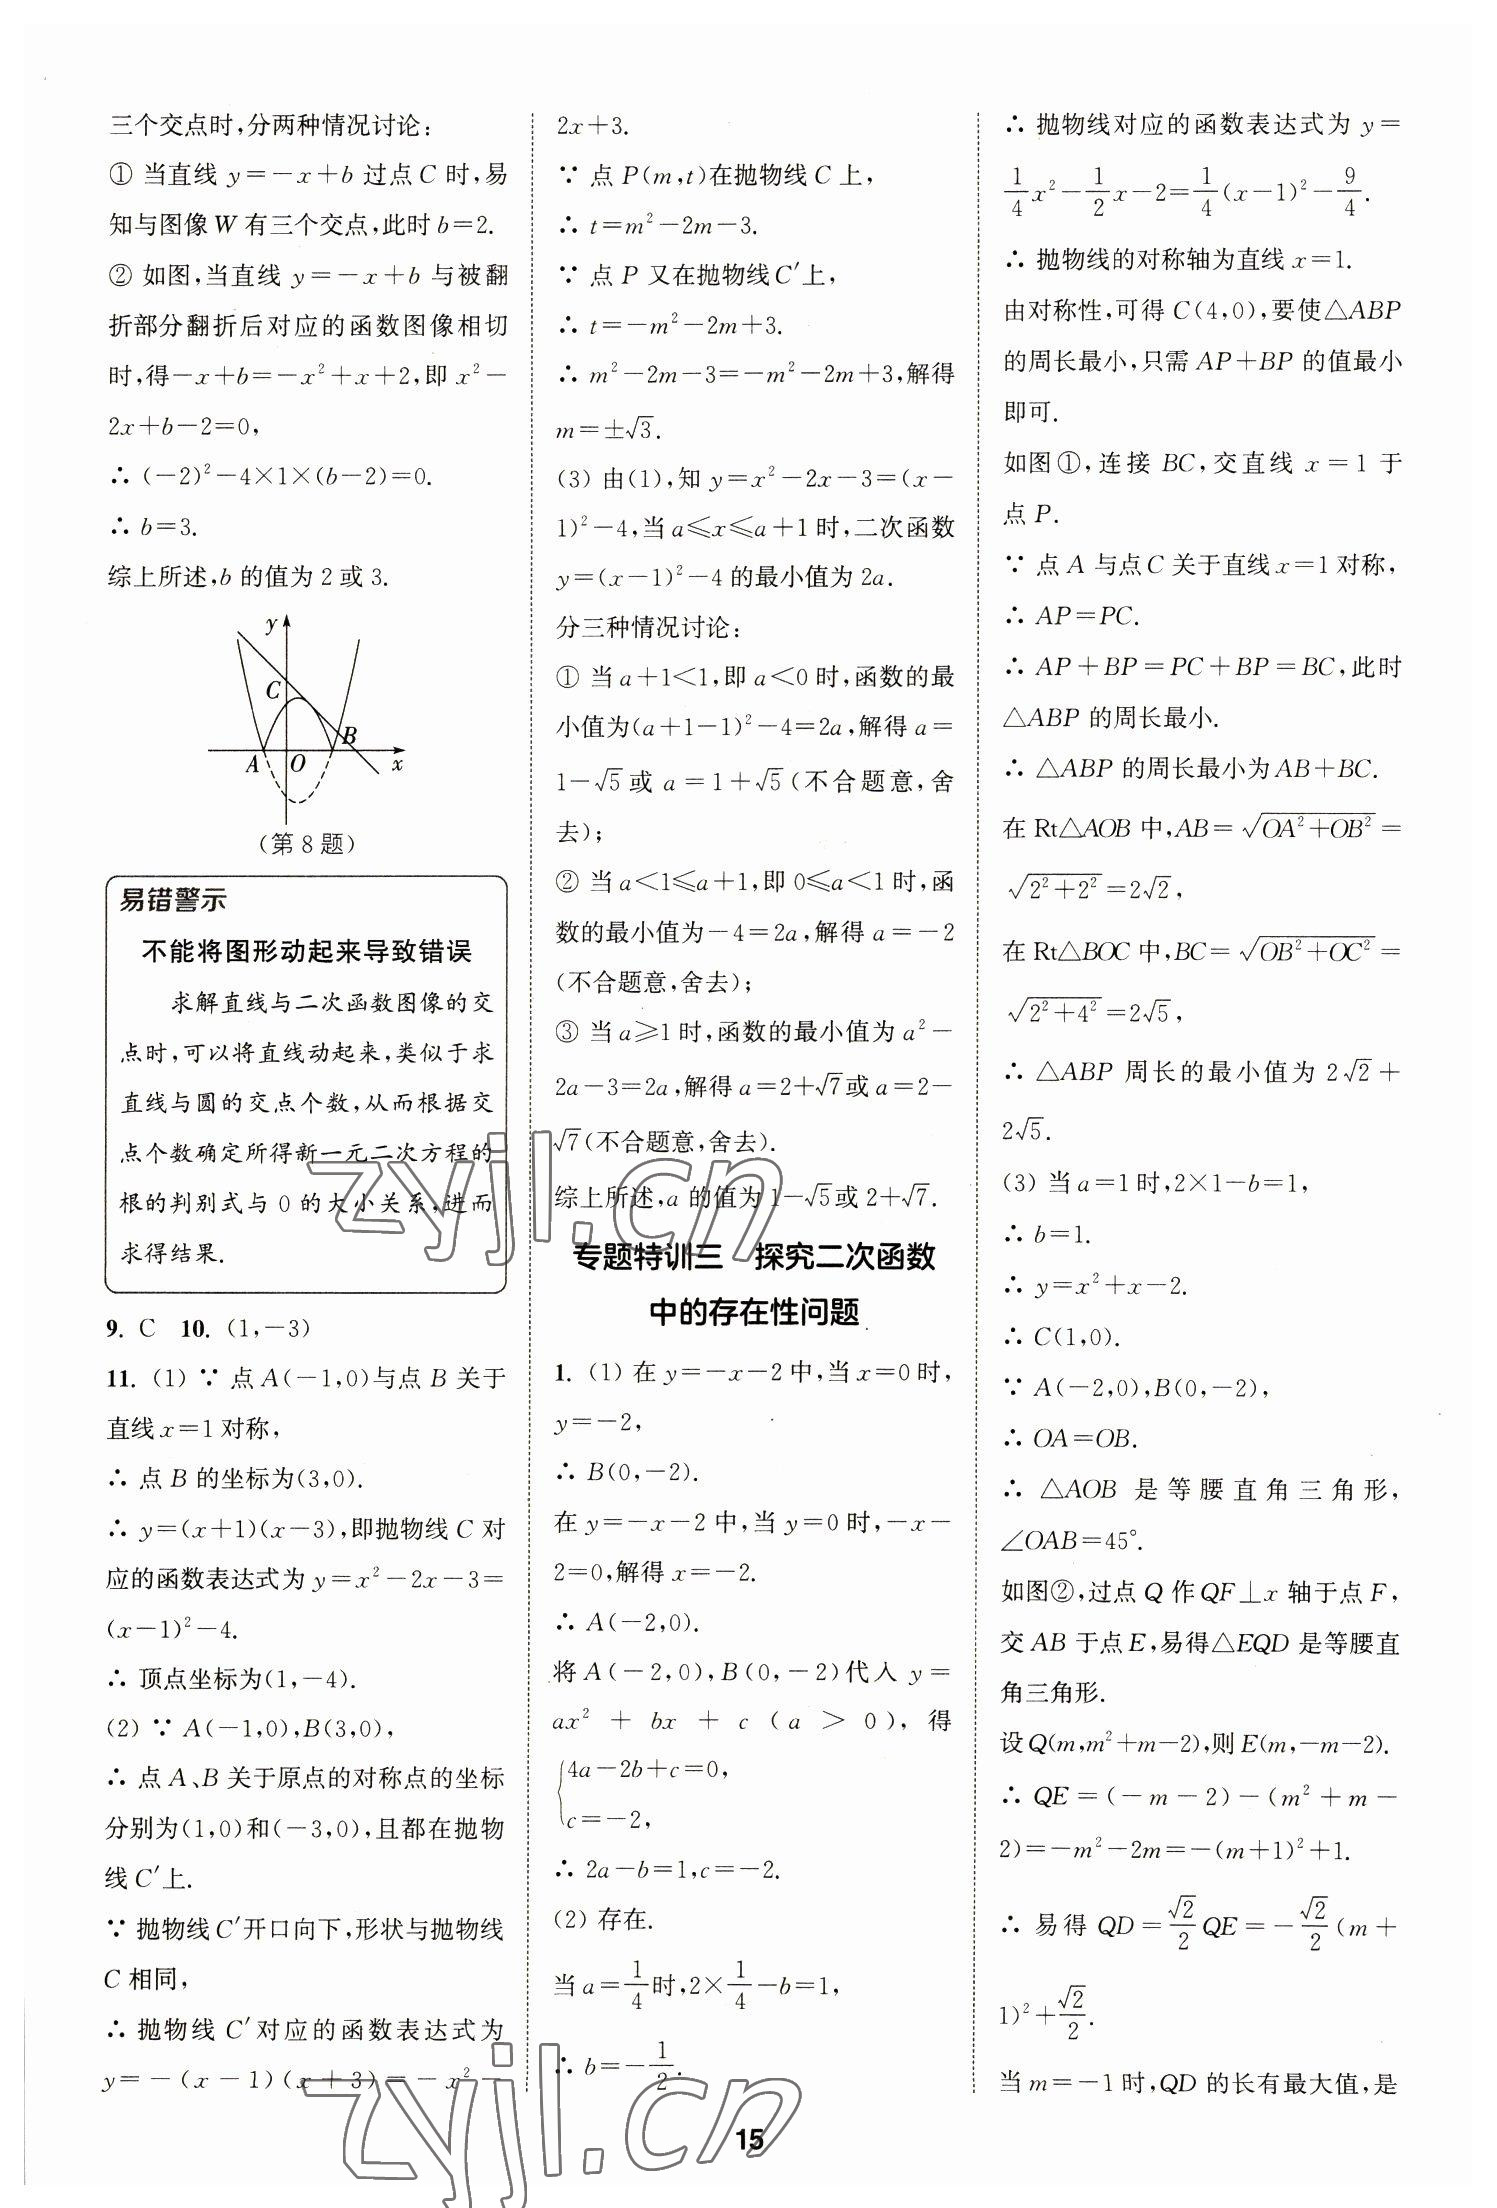 三个交点时,分两种情况讨论:
① 当直线 y=-x+b 过点 C 时,易
知与图像 W 有三个交点,此时 b=2.
② 如图,当直线 y=-x+b 与被翻
折部分翻折后对应的函数图像相切
时,得-x+b=-x²+x+2,即 x²-
2x+b-2=0,
∴ (-2)²-4×1×(b-2)=0.
∴ b=3.
综上所述,b 的值为 2 或 3.
y
C
B
A O x
(第 8 题)
易错警示
不能将图形动起来导致错误
求解直线与二次函数图像的交
点时,可以将直线动起来,类似于求
直线与圆的交点个数,从而根据交
点个数确定所得新一元二次方程的
根的判别式与 0 的大小关系,进而
求得结果.
9. C 10. (1,-3)
11. (1) ∵ 点 A(-1,0)与点 B 关于
直线 x=1 对称,
∴ 点 B 的坐标为(3,0).
∴ y=(x+1)(x-3),即抛物线 C 对
应的函数表达式为 y=x²-2x-3=
(x-1)²-4.
∴ 顶点坐标为(1,-4).
(2) ∵ A(-1,0),B(3,0),
∴ 点 A、B 关于原点的对称点的坐标
分别为(1,0)和(-3,0),且都在抛物
线 C′上.
∵ 抛物线 C′开口向下,形状与抛物线
C 相同,
∴ 抛物线 C′对应的函数表达式为
y=-(x-1)(x+3)=-x²-
2x+3.
∵ 点 P(m,t)在抛物线 C 上,
∴ t=m²-2m-3.
∵ 点 P 又在抛物线 C′上,
∴ t=-m²-2m+3.
∴ m²-2m-3=-m²-2m+3,解得
m=±√3.
(3) 由(1),知 y=x²-2x-3=(x-
1)²-4,当 a≤x≤a+1 时,二次函数
y=(x-1)²-4 的最小值为 2a.
分三种情况讨论:
① 当 a+1<1,即 a<0 时,函数的最
小值为(a+1-1)²-4=2a,解得 a=
1-√5或 a=1+√5(不合题意,舍
去);
② 当 a<1≤a+1,即 0≤a<1 时,函
数的最小值为-4=2a,解得 a=-2
(不合题意,舍去);
③ 当 a≥1 时,函数的最小值为 a²-
2a-3=2a,解得 a=2+√7或 a=2-
√7(不合题意,舍去).
综上所述,a 的值为 1-√5或 2+√7.
专题特训三 探究二次函数
中的存在性问题
1. (1) 在 y=-x-2 中,当 x=0 时,
y=-2,
∴ B(0,-2).
在 y=-x-2 中,当 y=0 时,-x-
2=0,解得 x=-2.
∴ A(-2,0).
将 A(-2,0),B(0,-2)代入 y=
ax²+bx+c(a>0),得
{4a-2b+c=0,
c=-2,
∴ 2a-b=1,c=-2.
(2) 存在.
当 a=1/4时,2×1/4-b=1,
∴ b=-1/2.
∴ 抛物线对应的函数表达式为 y=
1/4x²-1/2x-2=1/4(x-1)²-9/4.
∴ 抛物线的对称轴为直线 x=1.
由对称性,可得 C(4,0),要使△ABP
的周长最小,只需 AP+BP 的值最小
即可.
如图①,连接 BC,交直线 x=1 于
点 P.
∵ 点 A 与点 C 关于直线 x=1 对称,
∴ AP=PC.
∴ AP+BP=PC+BP=BC,此时
△ABP 的周长最小.
∴ △ABP 的周长最小为 AB+BC.
在 Rt△AOB 中,AB=√(OA²+OB²)=
√(2²+2²)=2√2,
在 Rt△BOC 中,BC=√(OB²+OC²)=
√(2²+4²)=2√5,
∴ △ABP 周长的最小值为 2√2+
2√5.
(3) 当 a=1 时,2×1-b=1,
∴ b=1.
∴ y=x²+x-2.
∴ C(1,0).
∵ A(-2,0),B(0,-2),
∴ OA=OB.
∴ △AOB 是等腰直角三角形,
∠OAB=45°.
如图②,过点 Q 作 QF⊥x 轴于点 F,
交 AB 于点 E,易得△EQD 是等腰直
角三角形.
设 Q(m,m²+m-2),则 E(m,-m-2).
∴ QE=(-m-2)-(m²+m-
2)=-m²-2m=-(m+1)²+1.
∴ 易得 QD=√2/2QE=-√2/2(m+
1)²+√2/2.
当 m=-1 时,QD 的长有最大值,是
15
zyjl.cn
zyjl.cn